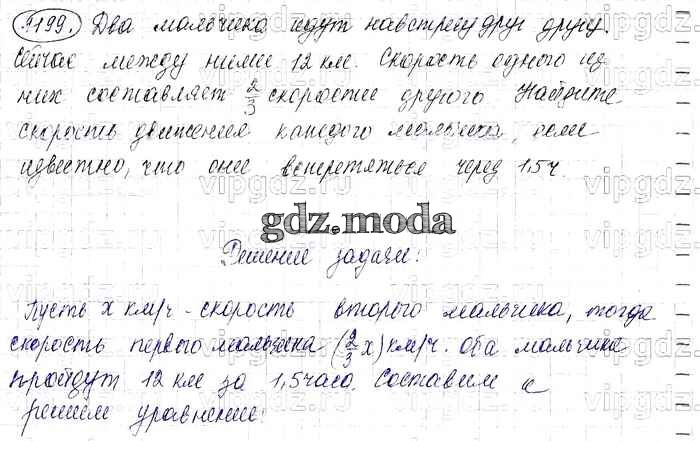 1199. Два мальчика идут навстречу друг другу.
Сейчас между ними 12 км. Скорость одного из
них составляет 2/3 скорости другого. Найдите
скорость движения каждого мальчика, если
известно, что они встретятся через 1,5ч.
gdz.moda
Решение задачи:
Пусть x км/ч - скорость второго мальчика, тогда
скорость первого мальчика (2/3 x) км/ч. Оба мальчика
пройдут 12 км за 1,5часа. Составим и
решим уравнение: